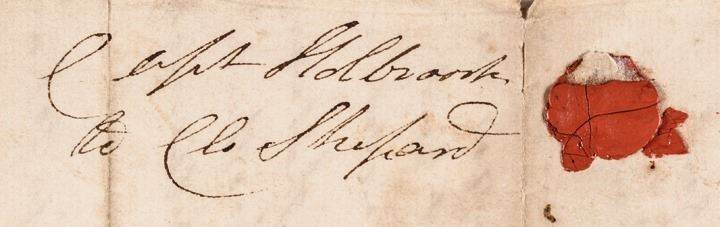 Capt Holbrook
to Clo Shepard